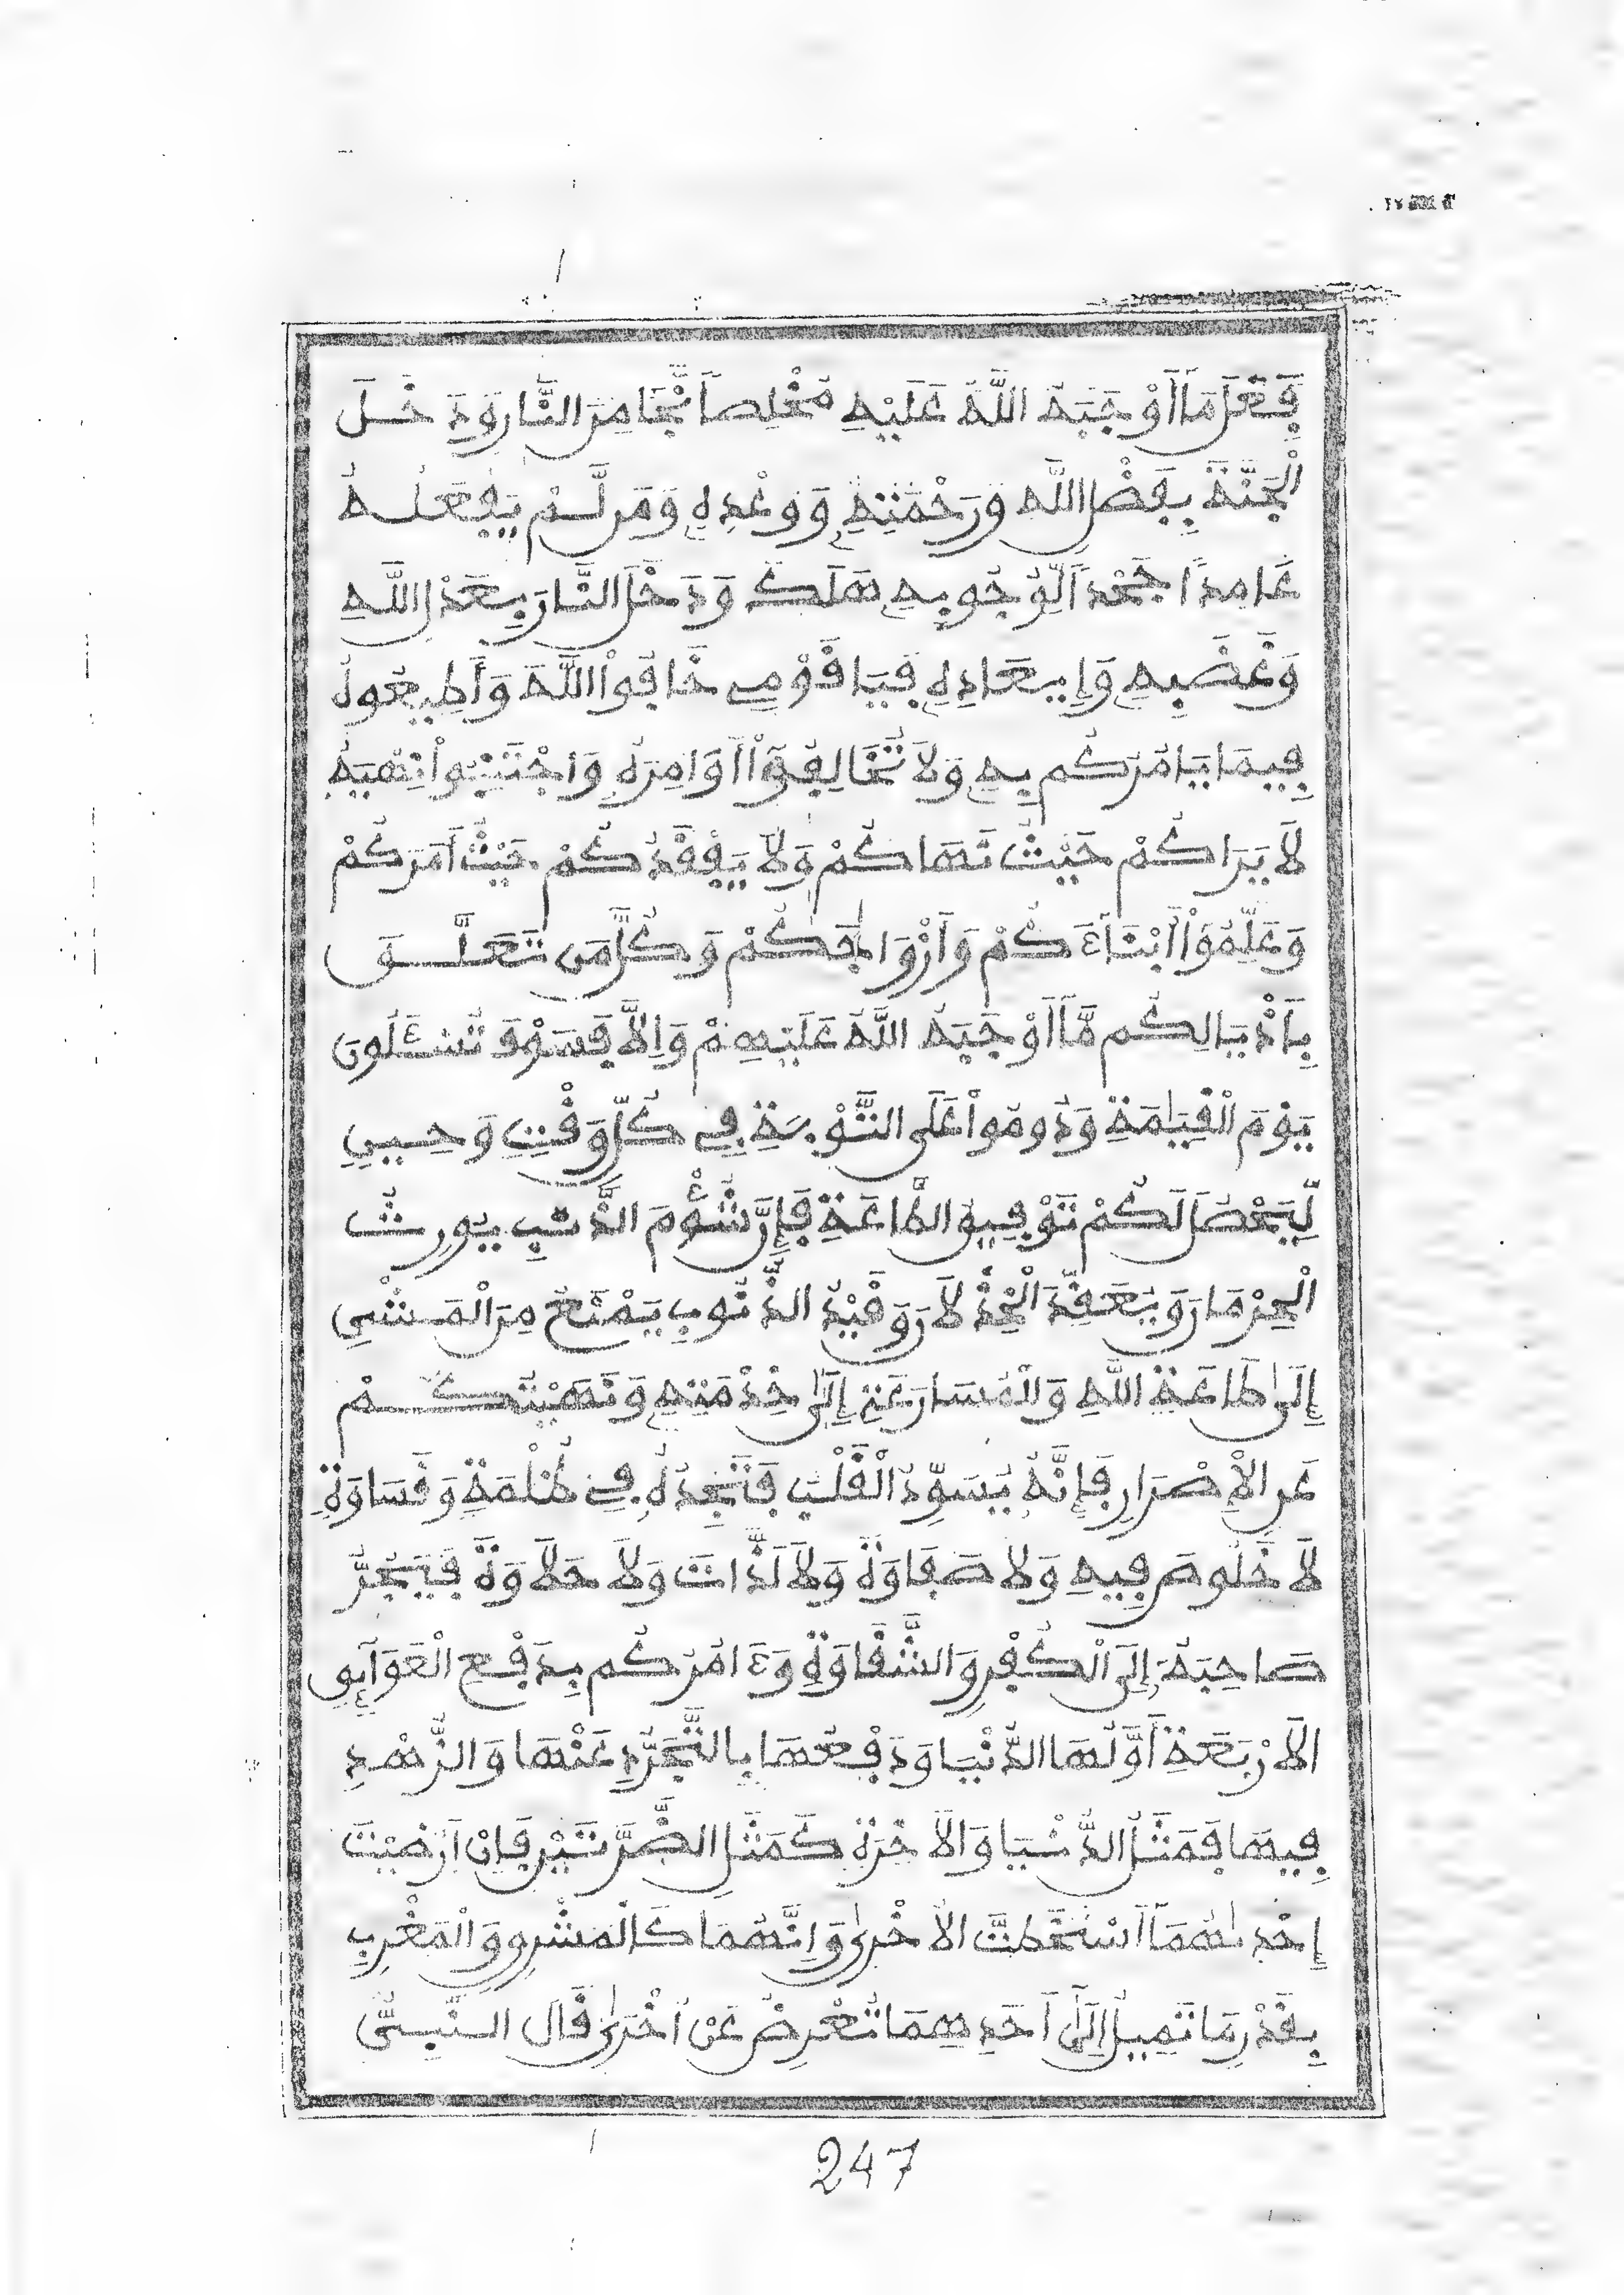 فَعَلَ مَا أَوْجَبَهُ اللَّهُ عَلَيْهِ مُخْلِصاً نَجَا مِنَ النَّارِ وَدَخَلَ
الْجَنَّةَ بِفَضْلِ اللَّهِ وَرَحْمَتِهِ وَوَعْدِهِ وَمَن لَّمْ يَفْعَلْهُ
عَامِداً جَحْداً لِّوُجُوبِهِ هَلَكَ وَدَخَلَ النَّارَ بِعَدْلِ اللَّهِ
وَغَضَبِهِ وَإِيعَادِهِ فَيَا قَوْمِي خَافُواْ اللَّهَ وَأَطِيعُوهُ
فِيمَا يَامُرُكُم بِهِ وَلاَ تُخَالِفُوٓاْ أَوَامِرَهُ وَاجْتَنِبُواْ نَهْيَهُ
لاَ يَرَاكُمْ حَيْثُ نَهَاكُمْ وَلاَ يَفْقِدُكُمْ حَيْثُ أَمَرَكُمْ
وَعَلِّمُوٓاْ أَبْنَآءَكُمْ وَأَزْوَاجَكُمْ وَكُلَّ مَن تَعَلَّقَ
بِأَذْيَالِكُم مَّآ أَوْجَبَهُ اللَّهُ عَلَيْهِمْ وَإِلاَّ فَسَوْفَ تُسْـَٔلُونَ
يَوْمَ الْقِيَٰمَةِ وَدُومُواْ عَلَى التَّوْبَةِ فِي كُلِّ وَقْتٍ وَحِينٍ
لِّيَحْصُلَ لَكُمْ تَوْفِيقُ الطَّاعَةِ فَإِنَّ شُؤْمَ الذَّنبِ يُورِثُ
الْحِرْمَانَ وَيُعَقِّدُ الْخِذْلاَنَ وَقَيْدُ الذُّنُوبِ يَمْنَعُ مِنَ الْمَشْيِ
إِلَىٰ طَاعَةِ اللَّهِ وَالْمُسَارَعَةِ إِلَىٰ خِدْمَتِهِ وَنَهَيْتُكُمْ
عَنِ الإِصْرَارِ فَإِنَّهُ يُسَوِّدُ الْقَلْبَ فَتَجِدُهُ فِي ظُلْمَةٍ وَقَسَاوَةٍ
لاَّ خُلُوصَ فِيهِ وَلاَ صَفَاوَةَ وَلاَ لَذَّاتَ وَلاَ حَلاَوَةَ فَيَجُرُّ
صَاحِبَهُ إِلَى الْكُفْرِ وَالشَّقَاوَةِ وَءَامُرُكُم بِدَفْعِ الْعَوَآئِقِ
الاَرْبَعَةِ أَوَّلُهَا الدُّنْيَا وَدَفْعُهَا بِالتَّجَرُّدِ عَنْهَا وَالزُّهْدِ
فِيهَا فَمَثَلُ الدُّنْيَا وَالاَخِرَةِ كَمَثَلِ الضَّرَّتَيْنِ فَإِنْ أَرْضَيْتَ
إِحْدَىٰهُمَآ أَسْخَطتَّ الاُخْرَىٰ وَإِنَّهُمَا كَالْمَشْرِقِ وَالْمَغْرِبِ
بِقَدْرِ مَا تَمِيلُ إِلَىٰ أَحَدِهِمَا تُعْرِضُ عَنْ أُخْرَىٰ قَالَ النَّبِيُّ
247